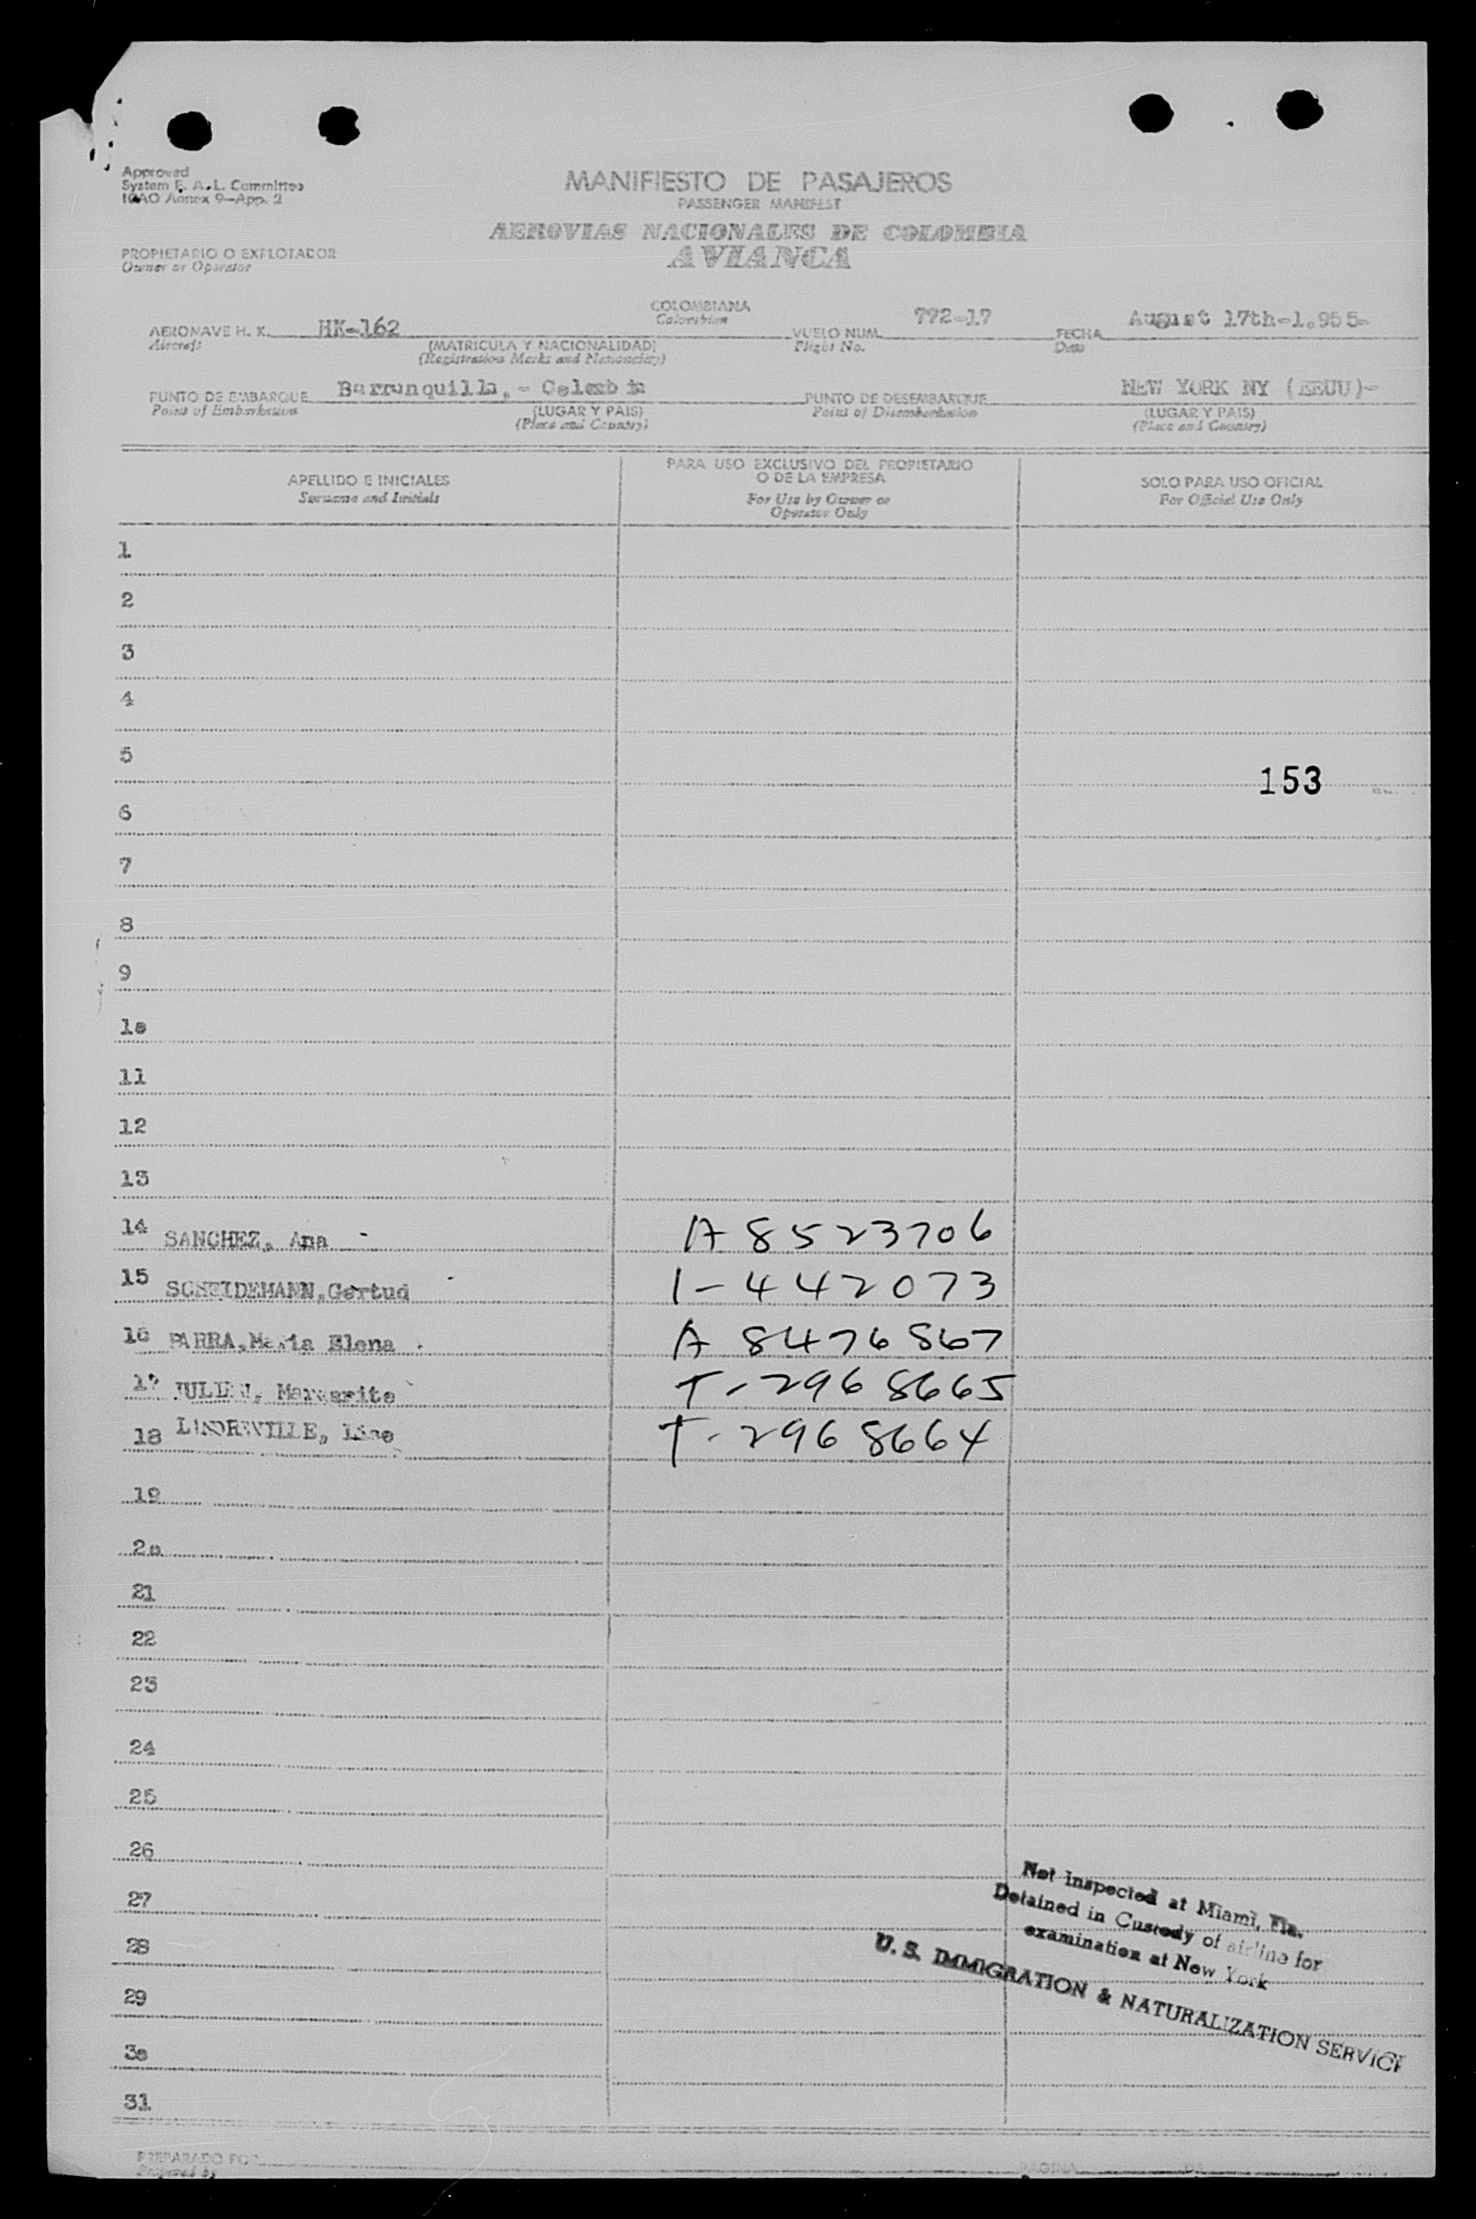 Approved
System F. A. L. Committee
ICAO Annex 9-App. 2
MANIFIESTO DE PASAJEROS
PASSENGER MANIFEST
AEROVIAS NACIONALES DE COLOMBIA
AVIANCA
PROPIETARIO O EXPLOTADOR
Owner or Operator
AERONAVE H. K. HK-162
Aircraft
COLOMBIANA
Colombian
(MATRICULA Y NACIONALIDAD)
(Registration Marks and Nationality)
VUELO NUM. 772-17
Flight No.
FECHA August 17th-1.955-
Date
PUNTO DE EMBARQUE Barranquilla,- Colombia
Point of Embarkation
(LUGAR Y PAIS)
(Place and Country)
PUNTO DE DESEMBARQUE NEW YORK NY (EEUU)-
Point of Disembarkation
(LUGAR Y PAIS)
(Place and Country)
APELLIDO E INICIALES
Surname and Initials
PARA USO EXCLUSIVO DEL PROPIETARIO
O DE LA EMPRESA
For Use by Owner or
Operator Only
SOLO PARA USO OFICIAL
For Official Use Only
1
2
3
4
5
153
6
7
8
9
1o
11
12
13
14 SANCHEZ, Ana - A 8523706
15 SCHEIDEMANN,Gertud - 1-442073
16 PARRA,Maria Elena A 8476567
17 JULIEN, Margarite T-2968665
18 Lise T-2968664
19
2o
21
22
23
24
25
26
27
28
29
3o
31
Not Inspected at Miami, Fla.
Detained in Custody of airline for
examination at New York
U. S. IMMIGRATION & NATURALIZATION SERVICE
PREPARADO POR
Prepared by
PAGINA DE